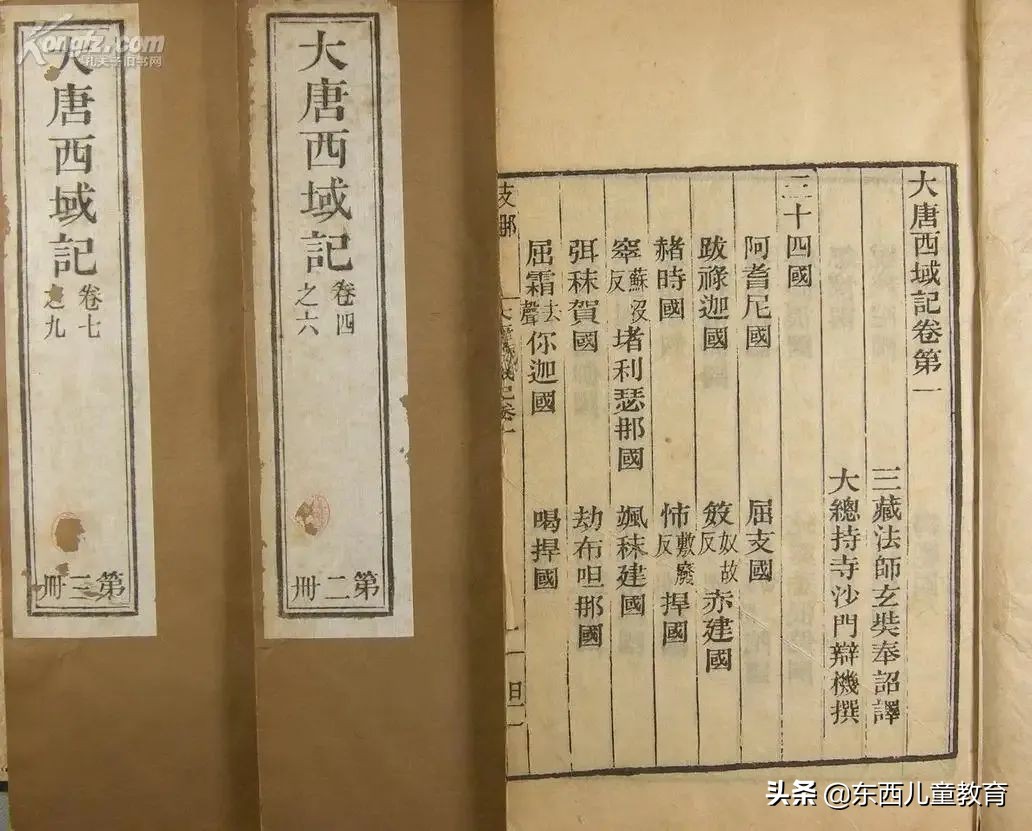 大唐西域記卷第一
三藏法師玄奘奉詔譯
大總持寺沙門辯機撰
三十四國
阿耆尼國 屈支國
跋祿迦國 笯奴故反赤建國
赭時國 㤄敷廢反捍國
窣蘇沒反堵利瑟那國 颯秣建國
弭秣賀國 劫布呾那國
屈霜去聲你迦國 喝捍國
支那
大唐西域記 卷四之六
第二冊
大唐西域記 卷七之九
第三冊
Kongfz.com
孔夫子旧书网
头条 @东西儿童教育